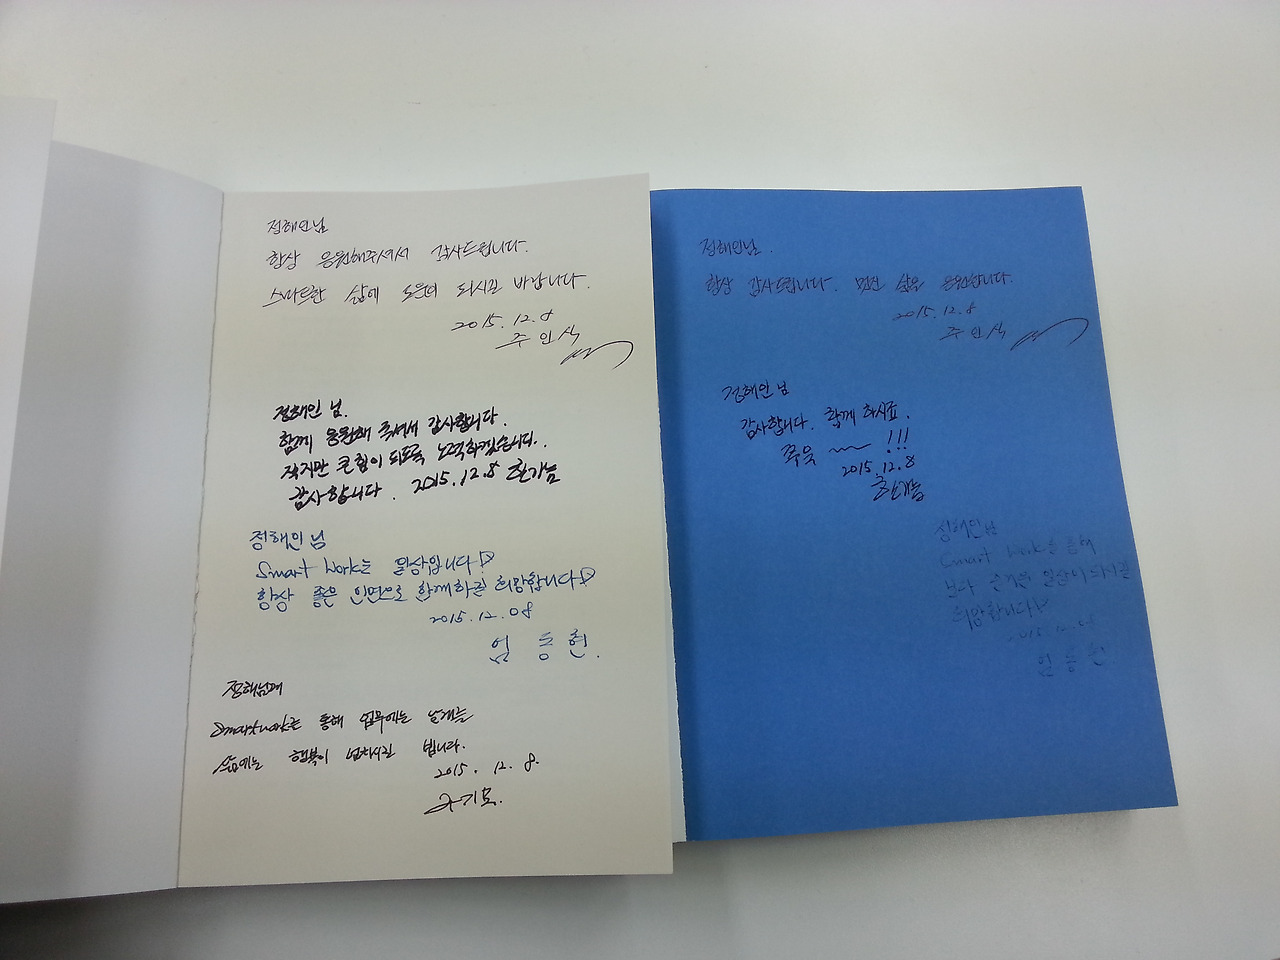 정해인님
항상 응원해주셔서 감사드립니다.
스마트한 삶에 도움이 되시길 바랍니다.
2015.12.8
주인식
정해인 님.
함께 응원해 주셔서 감사합니다.
작지만 큰힘이 되도록 노력하겠습니다.
감사합니다. 2015.12.8
정해인님
Smart Work는 일상입니다!
항상 좋은 인연으로 함께하길 희망합니다
2015.12.08
임동현.
정해님께
Smartwork를 통해 업무에는 날개를
삶에는 행복이 넘치시길 빕니다.
2015. 12. 8.
정해인님.
항상 감사드립니다. 멋진 삶을 응원합니다.
2015.12.8
주인식
정해인님
감사합니다. 함께 하시죠.
쭈욱 ~~ !!!
2015.12.8
정해인님
Smart Work를 통해
보다 즐거운 일상이 되시길
희망합니다
2015.12.08
임동현